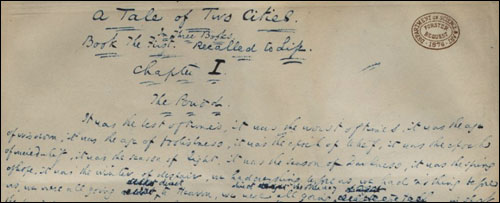 A Tale of Two Cities.
In Three Books.
Book The First. Recalled to Life.
Chapter I.
The Period.
It was the best of times, it was the worst of times, it was the age
of wisdom, it was the age of foolishness, it was the epoch of belief, it was the epoch
of incredulity, it was the season of Light, it was the season of Darkness, it was the spring
of hope, it was the winter of despair, we had everything before us, we had nothing before
us, we were all going direct to Heaven, we were all going
FORSTER
BEQUEST